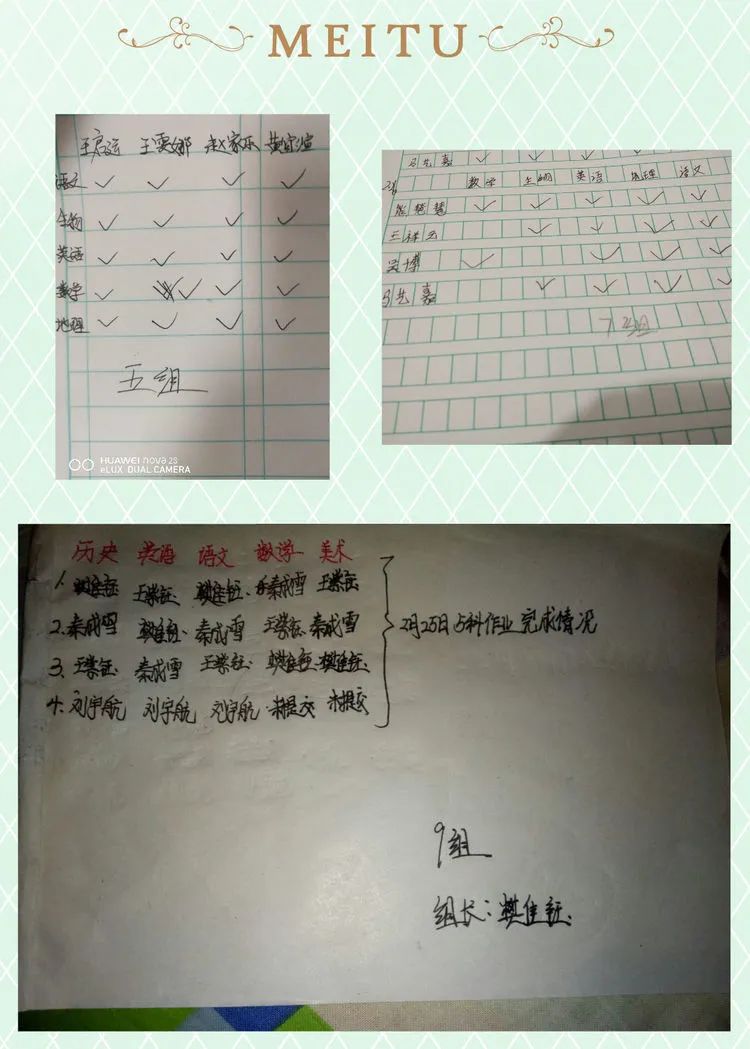 MEITU
王雲娜 赵家乐
语文
生物
英语
数学
地理
五组
HUAWEI nova 2S
eLUX DUAL CAMERA
马艺嘉
数学 生物 英语 地理 语文
张楚慧
王祥云
吴博
马艺嘉
7组
历史 英语 语文 数学 美术
1. 樊佳钰 王紫钰 樊佳钰 秦成雪 王紫钰
2. 秦成雪 樊佳钰 秦成雪 王紫钰 秦成雪
3. 王紫钰 秦成雪 王紫钰 樊佳钰 樊佳钰
4. 刘宇航 刘宇航 刘宇航 未提交 未提交
2月25日5科作业完成情况
9组
组长：樊佳钰